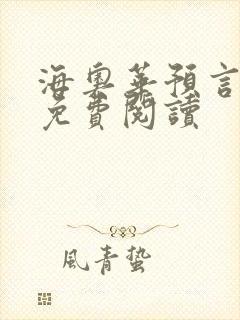 海奧華預言
免費閱讀
風青蟄